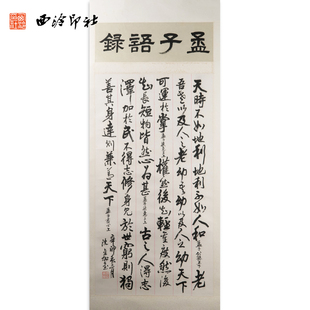 西泠印社
孟子語錄
天時不如地利地利不如人和老
吾老以及人之老幼吾幼以及人之幼天下
可運於掌權然後知輕重度然後
知長短物皆然心為甚古之人得志
澤加於民不得志修身見於世窮則獨
善其身達則兼善天下
辛卯